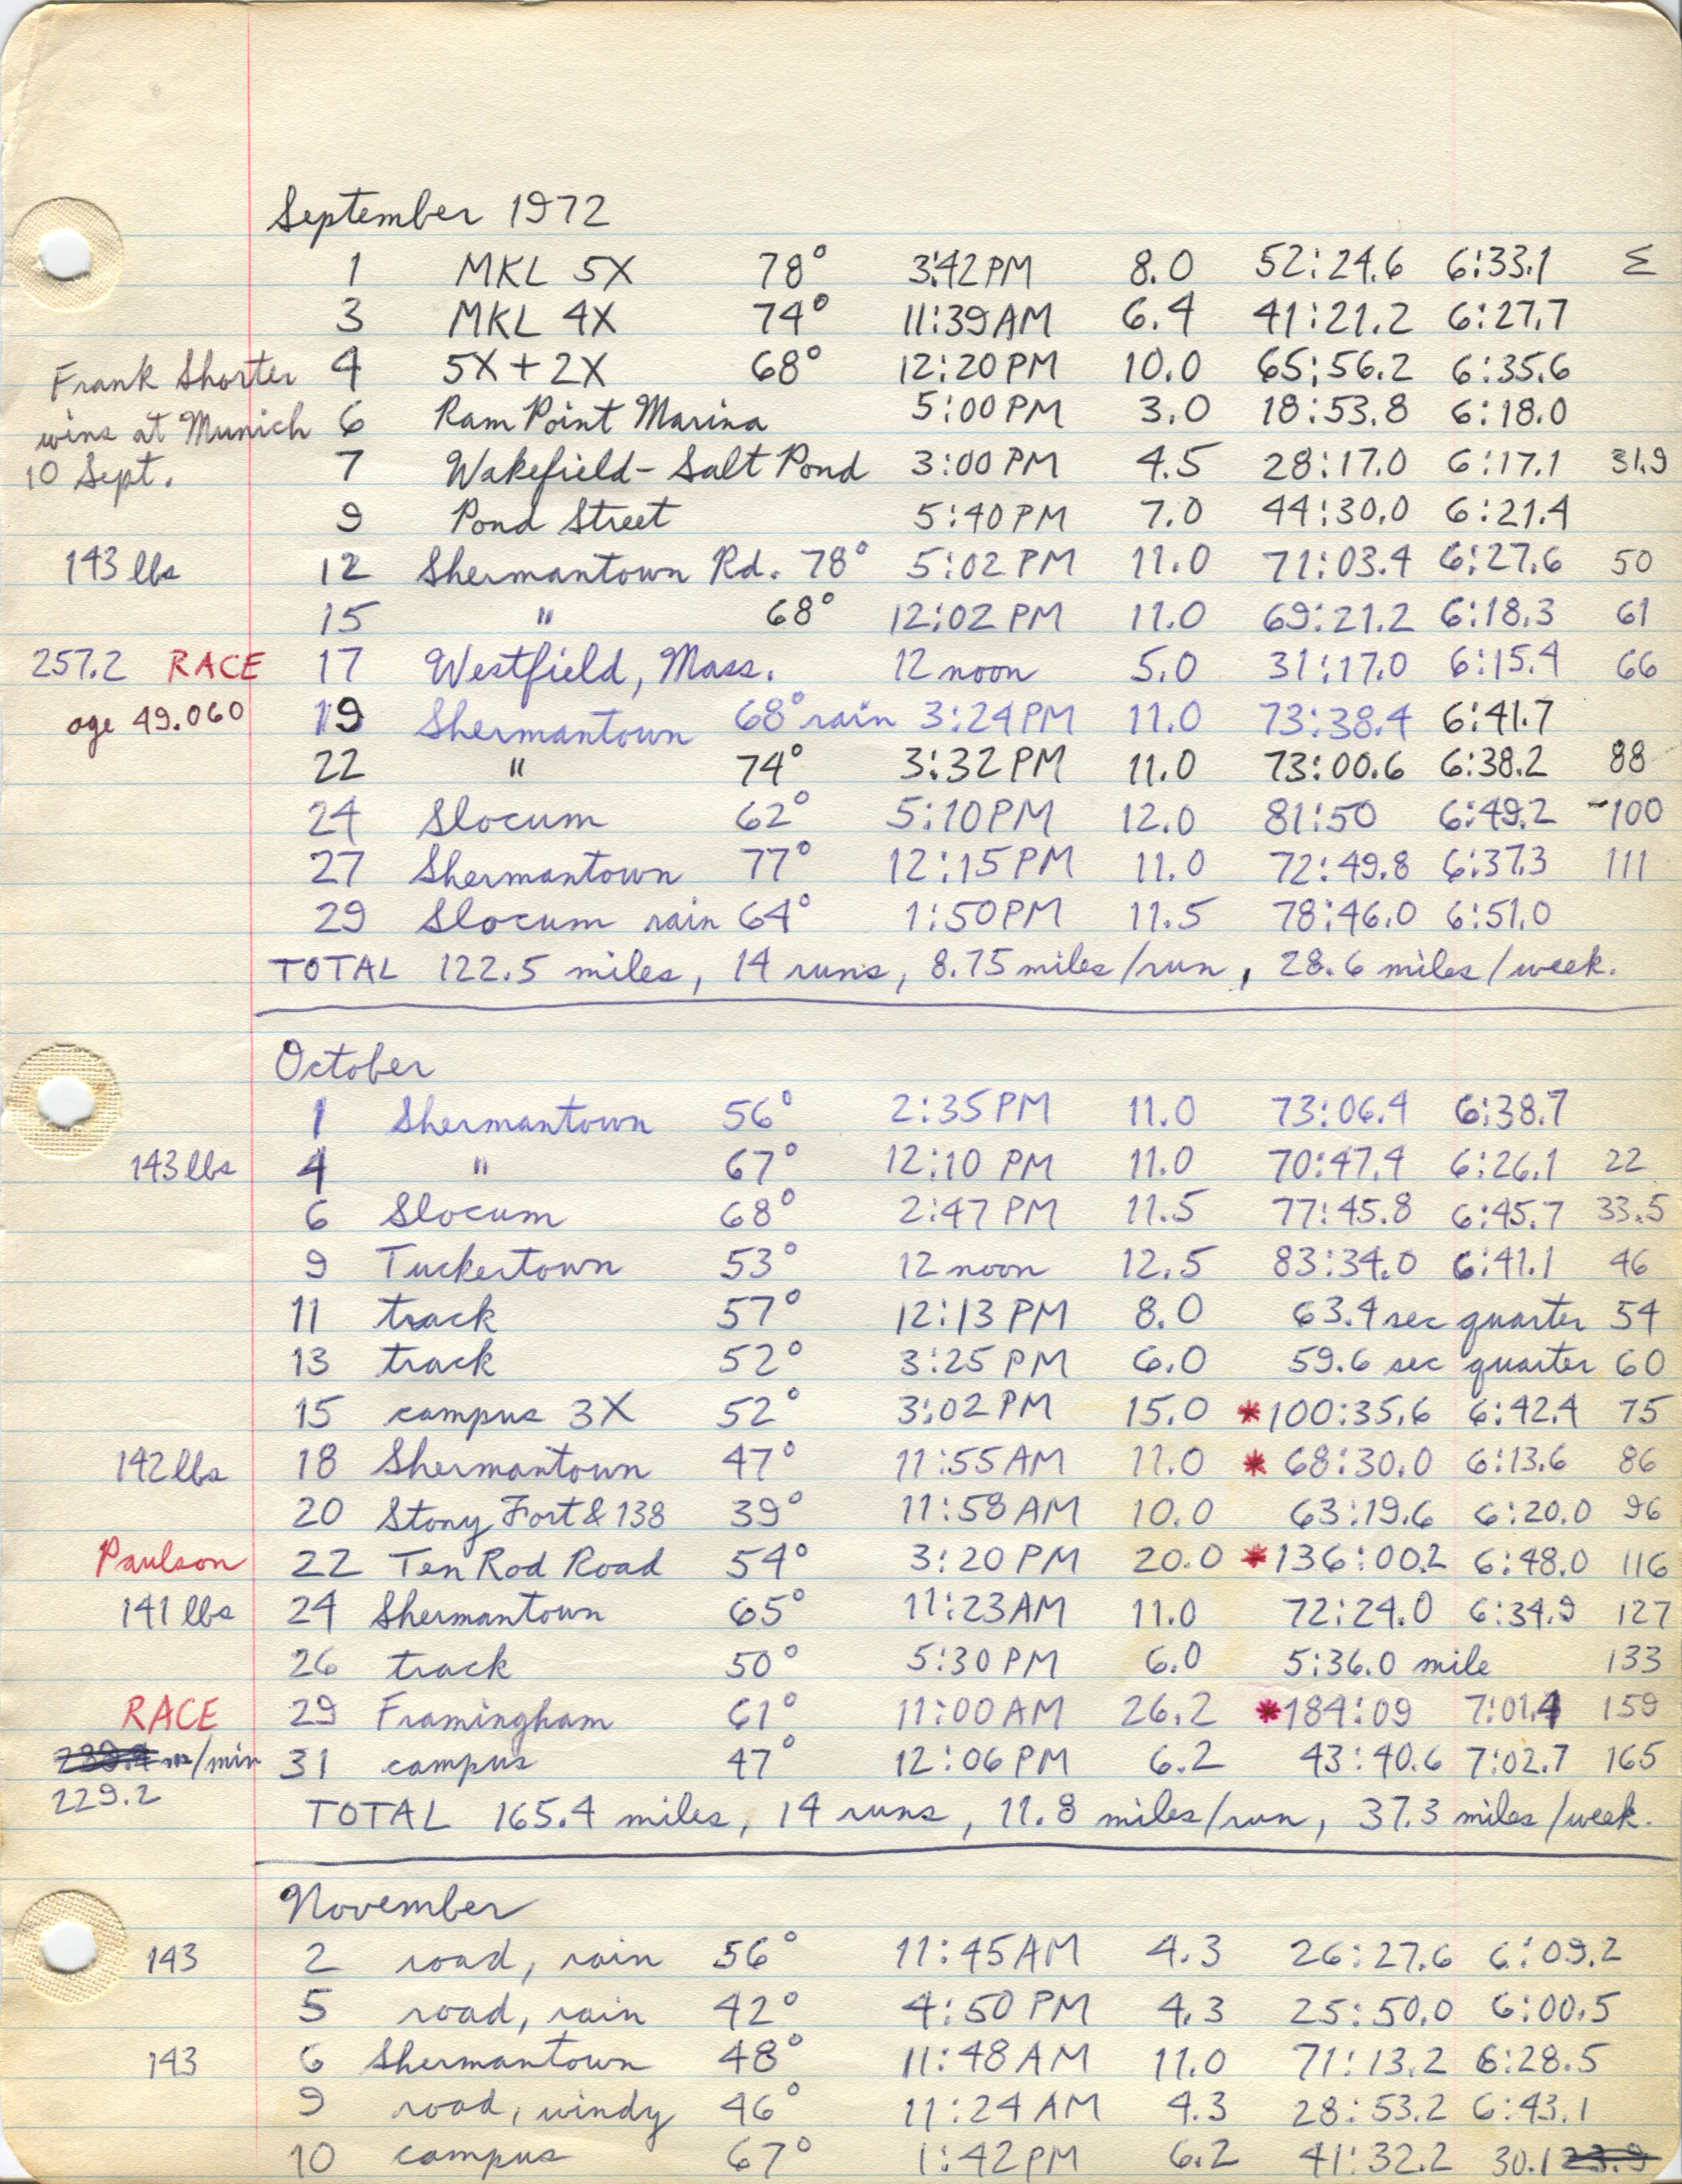 September 1972
1 MKL 5X 78° 3:42 PM 8.0 52:24.6 6:33.1 Σ
3 MKL 4X 74° 11:39 AM 6.4 41:21.2 6:27.7
Frank Shorter 4 5X + 2X 68° 12:20 PM 10.0 65:56.2 6:35.6
wins at Munich 6 Ram Point Marina 5:00 PM 3.0 18:53.8 6:18.0
10 Sept. 7 Wakefield - Salt Pond 3:00 PM 4.5 28:17.0 6:17.1 31.9
9 Pond Street 5:40 PM 7.0 44:30.0 6:21.4
143 lbs 12 Shermantown Rd. 78° 5:02 PM 11.0 71:03.4 6:27.6 50
15 " 68° 12:02 PM 11.0 69:21.2 6:18.3 61
257.2 RACE 17 Westfield, Mass. 12 noon 5.0 31:17.0 6:15.4 66
age 49.060 19 Shermantown 68° rain 3:24 PM 11.0 73:38.4 6:41.7
22 " 74° 3:32 PM 11.0 73:00.6 6:38.2 88
24 Slocum 62° 5:10 PM 12.0 81:50 6:49.2 ~100
27 Shermantown 77° 12:15 PM 11.0 72:49.8 6:37.3 111
29 Slocum rain 64° 1:50 PM 11.5 78:46.0 6:51.0
TOTAL 122.5 miles, 14 runs, 8.75 miles/run, 28.6 miles/week.
October
1 Shermantown 56° 2:35 PM 11.0 73:06.4 6:38.7
143 lbs 4 " 67° 12:10 PM 11.0 70:47.4 6:26.1 22
6 Slocum 68° 2:47 PM 11.5 77:45.8 6:45.7 33.5
9 Tuckertown 53° 12 noon 12.5 83:34.0 6:41.1 46
11 track 57° 12:13 PM 8.0 63.4 sec quarter 54
13 track 52° 3:25 PM 6.0 59.6 sec quarter 60
15 campus 3X 52° 3:02 PM 15.0 *100:35.6 6:42.4 75
142 lbs 18 Shermantown 47° 11:55 AM 11.0 * 68:30.0 6:13.6 86
20 Stony Fort & 138 39° 11:58 AM 10.0 63:19.6 6:20.0 96
Paulson 22 Ten Rod Road 54° 3:20 PM 20.0 *136:00.2 6:48.0 116
141 lbs 24 Shermantown 65° 11:23 AM 11.0 72:24.0 6:34.9 127
26 track 50° 5:30 PM 6.0 5:36.0 mile 133
RACE 29 Framingham 61° 11:00 AM 26.2 *184:09 7:01.4 159
m/min 31 campus 47° 12:06 PM 6.2 43:40.6 7:02.7 165
229.2
TOTAL 165.4 miles, 14 runs, 11.8 miles/run, 37.3 miles/week.
November
143 2 road, rain 56° 11:45 AM 4.3 26:27.6 6:09.2
5 road, rain 42° 4:50 PM 4.3 25:50.0 6:00.5
143 6 Shermantown 48° 11:48 AM 11.0 71:13.2 6:28.5
9 road, windy 46° 11:24 AM 4.3 28:53.2 6:43.1
10 campus 67° 1:42 PM 6.2 41:32.2 30.1